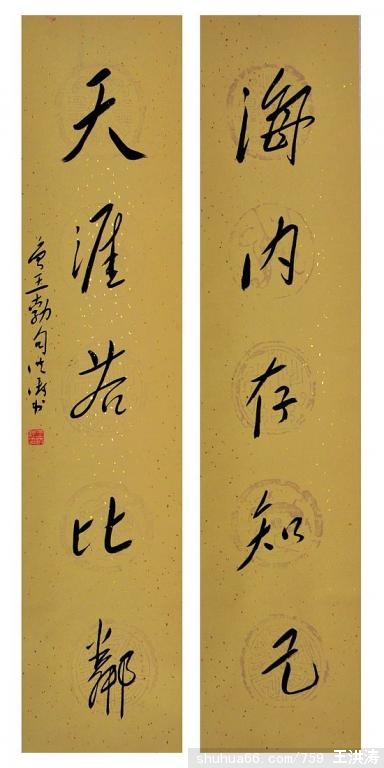 海内存知己
天涯若比鄰
王勃句洪涛书
shuhua66.com/759 王洪涛